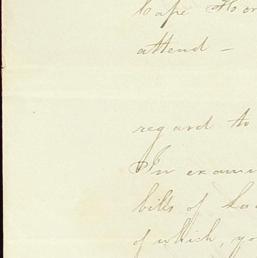 Cape Hor
attend –
regard to
In exami
bills of La
of which, yo